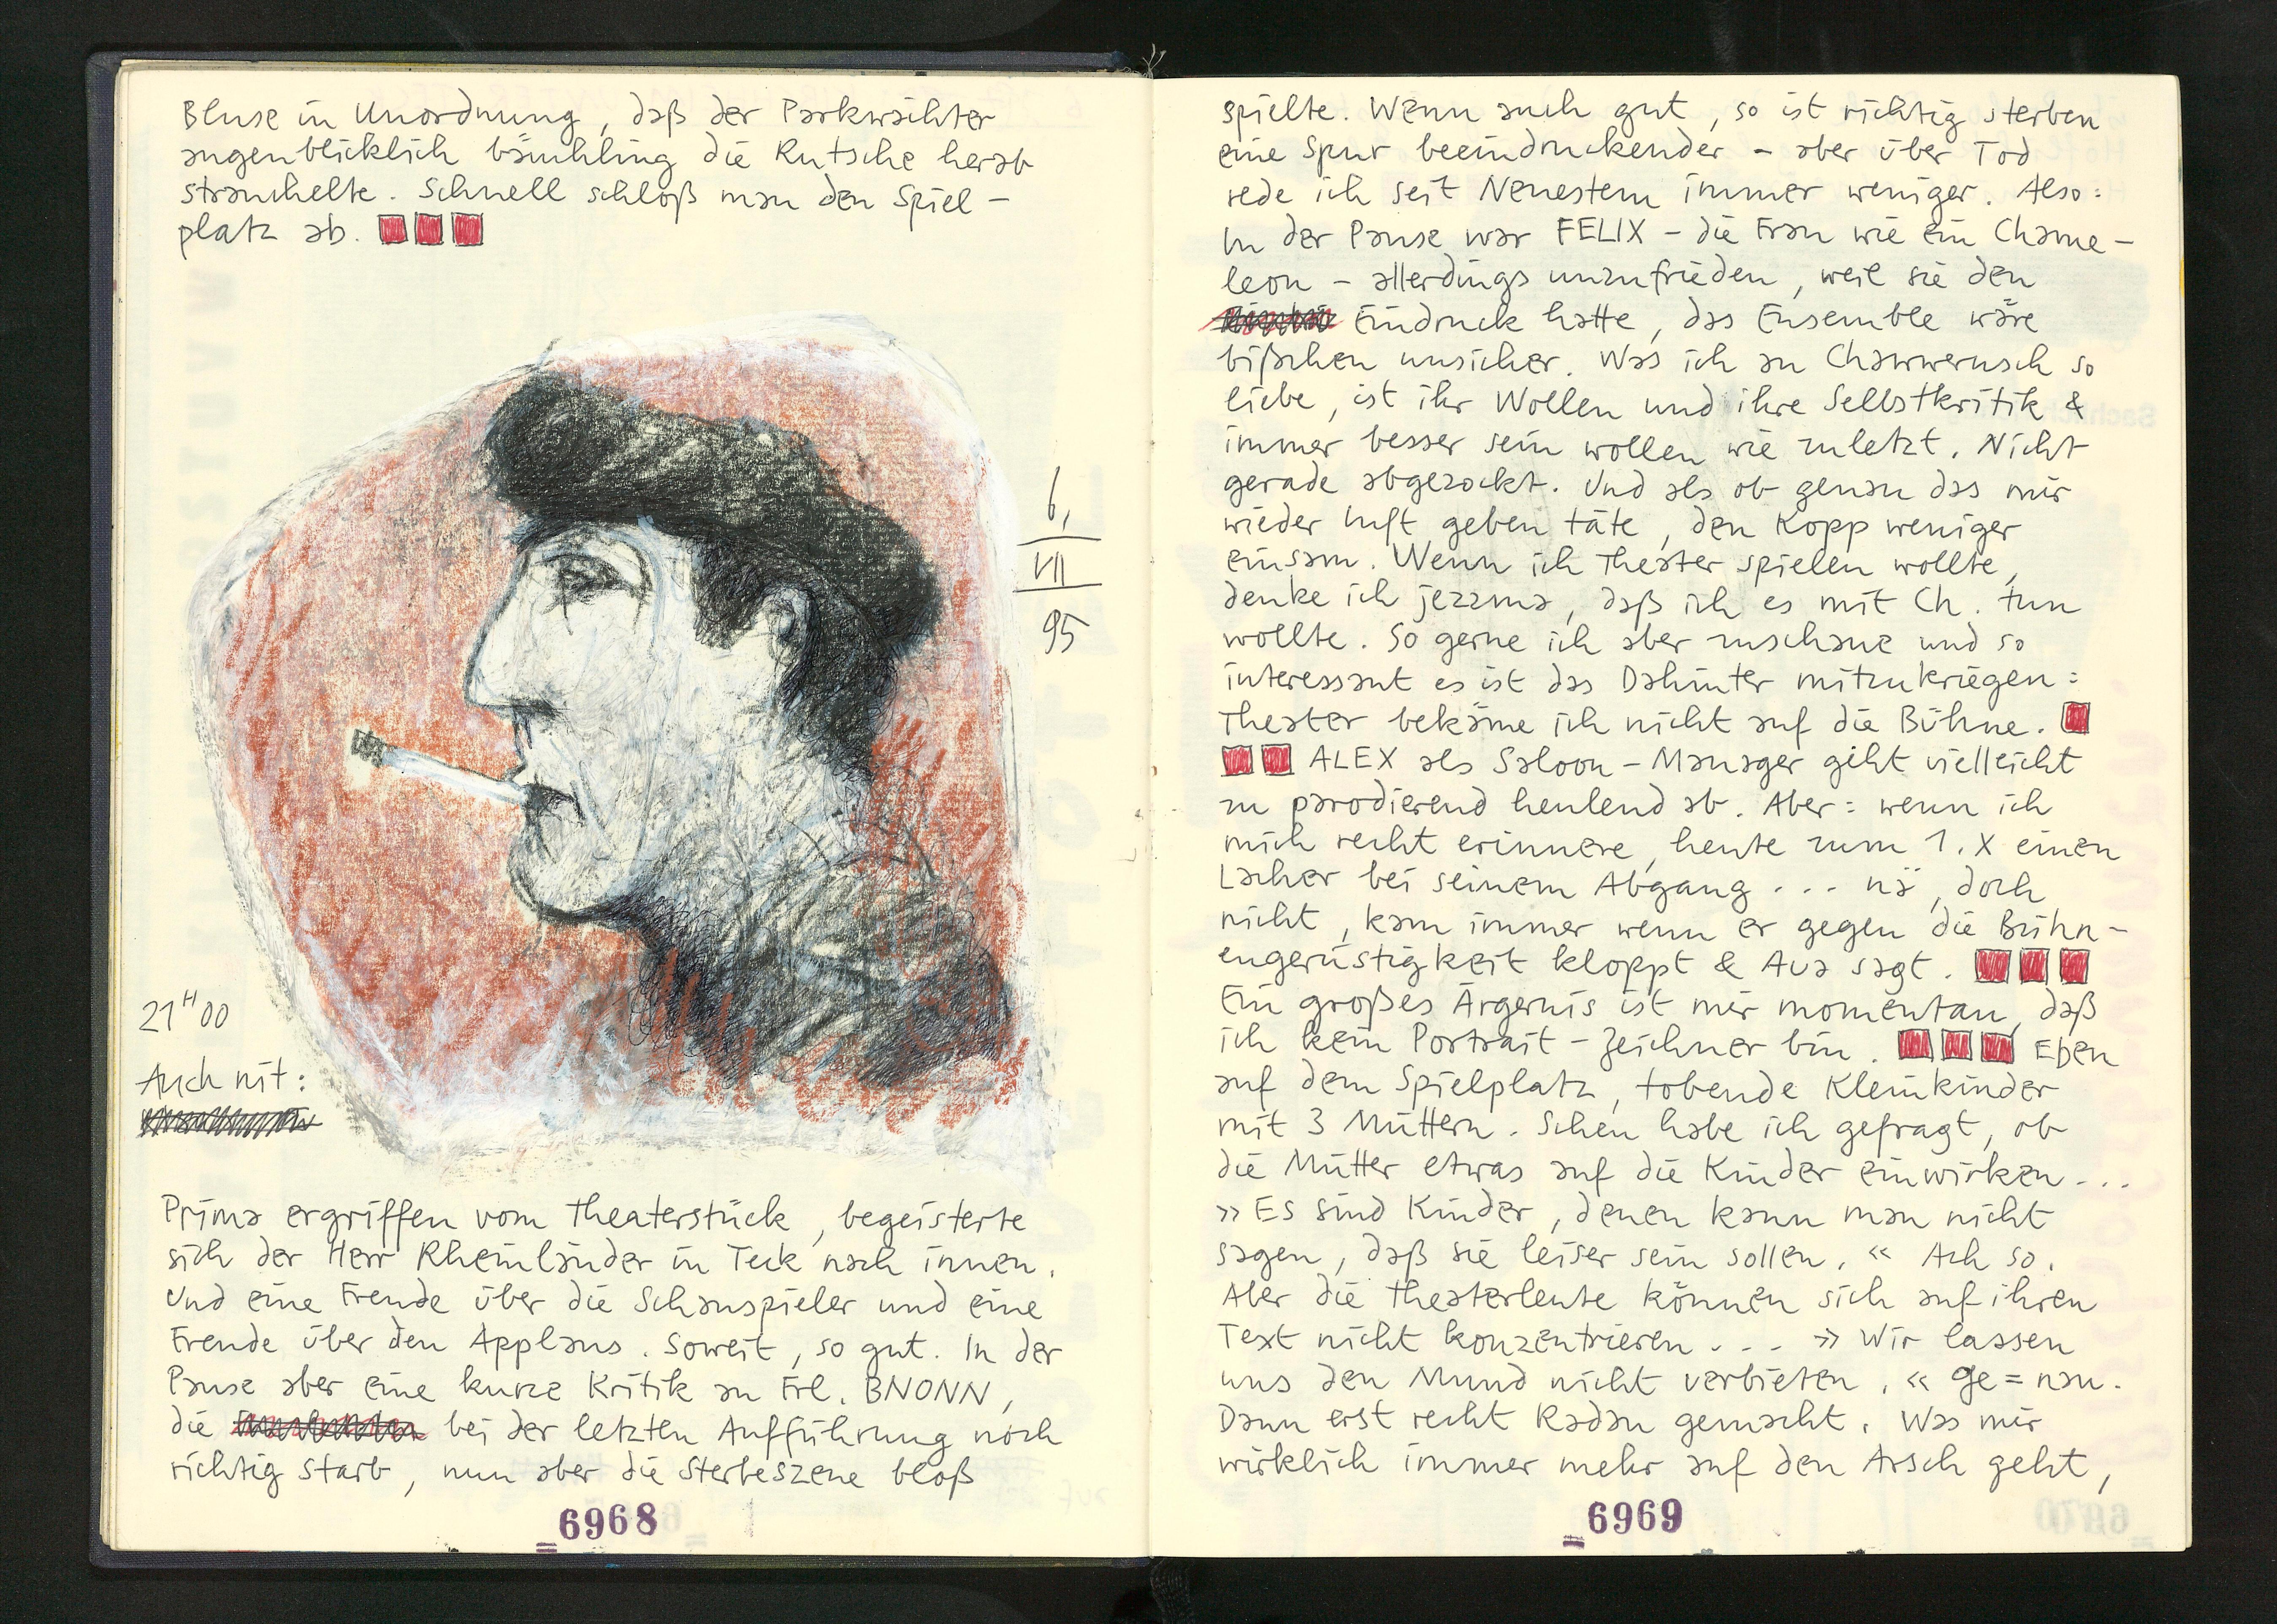 Bluse in Unordnung, daß der Parkwächter
augenblicklich bäuchling die Rutsche herab
strauchelte. Schnell schloß man den Spiel-
platz ab.
6.
VII
95
21H00
Auch mit:
Prima ergriffen vom Theaterstück, begeisterte
sich der Herr Rheinländer in Teck nach innen.
Und eine Freude über die Schauspieler und eine
Freude über den Applaus. Soweit, so gut. In der
Pause aber eine kurze Kritik an Frl. BNONN,
die bei der letzten Aufführung noch
richtig starb, nun aber die Sterbeszene bloß
6968
spielte. Wenn auch gut, so ist richtig sterben
eine Spur beeindruckender - aber über Tod
rede ich seit Neuestem immer weniger. Also:
In der Pause war FELIX - die Frau wie ein Chame-
leon - allerdings unzufrieden, weil sie den
Eindruck hatte, das Ensemble wäre
bißchen unsicher. Was ich an Chawwerusch so
liebe, ist ihr Wollen und ihre Selbstkritik &
immer besser sein wollen wie zuletzt. Nicht
gerade abgezockt. Und als ob genau das mir
wieder Luft geben täte, den Kopp weniger
einsam. Wenn ich Theater spielen wollte,
denke ich jezzma, daß ich es mit Ch. tun
wollte. So gerne ich aber zuschaue und so
interessant es ist das Dahinter mitzukriegen:
Theater bekäme ich nicht auf die Bühne.
ALEX als Saloon-Manager geht vielleicht
zu parodierend heulend ab. Aber: wenn ich
mich recht erinnere, heute zum 1. X einen
Lacher bei seinem Abgang ... nä, doch
nicht, kam immer wenn er gegen die Bühn-
engerüstigkeit kloppt & Aua sagt.
Ein großes Ärgernis ist mir momentan, daß
ich kein Portrait-Zeichner bin. Eben
auf dem Spielplatz, tobende Kleinkinder
mit 3 Müttern. Schen habe ich gefragt, ob
die Mütter etwas auf die Kinder einwirken...
»Es sind Kinder, denen kann man nicht
sagen, daß sie leiser sein sollen.« Ach so.
Aber die Theaterleute können sich auf ihren
Text nicht konzentrieren... »Wir lassen
uns den Mund nicht verbieten.« Ge=nau.
Dann erst recht Radau gemacht. Was mir
wirklich immer mehr auf den Arsch geht,
6969